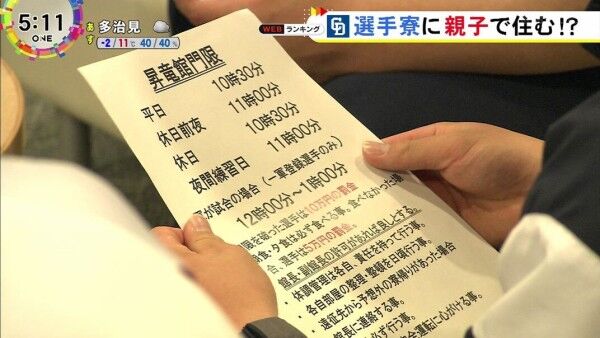 5:11
ONE
あす
多治見
-2/11℃ 40/40%
WEB
ランキング
CD
選手寮に親子で住む!?
昇竜館門限
平日 10時30分
休日前夜 11時00分
休日 10時30分
夜間練習日 11時00分
が試合の場合(一軍登録選手のみ)
12時00分~1時00分
限を破った選手は10万円の罰金
食・夕食は必ず食べる事。食べなかった場
合、選手は5万円の罰金。
館長・副館長の許可があれば良しとする。
・体調管理は各自、責任を持って行う事。
・各自部屋の整理・整頓を日頃行う事。
・遠征先から予想外の寮帰りがあった場合
館長に連絡する事。
必ず行う事。
安全運転に心がける事。